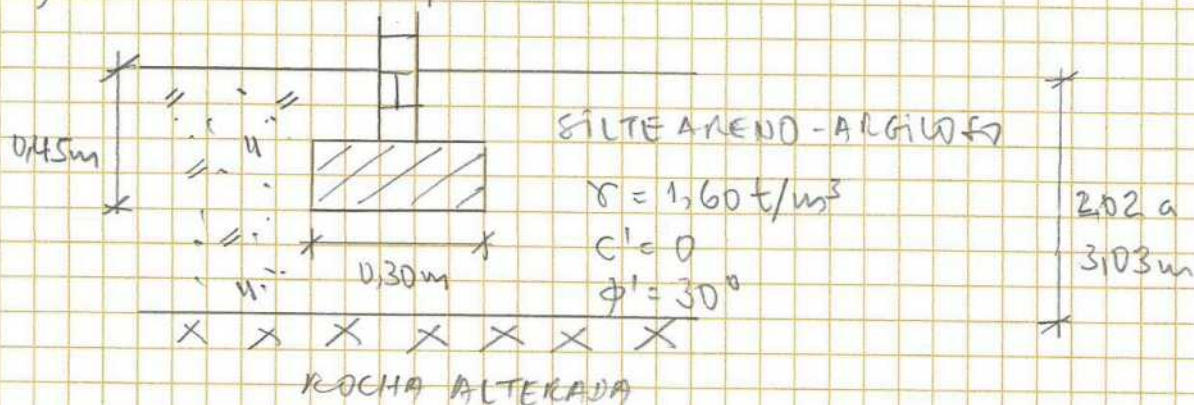 0,45m
0,30m
SILTE ARENO-ARGILOSO
γ = 1,60 t/m³
C' = 0
φ' = 30°
2,02 a
3,03m
ROCHA ALTERADA